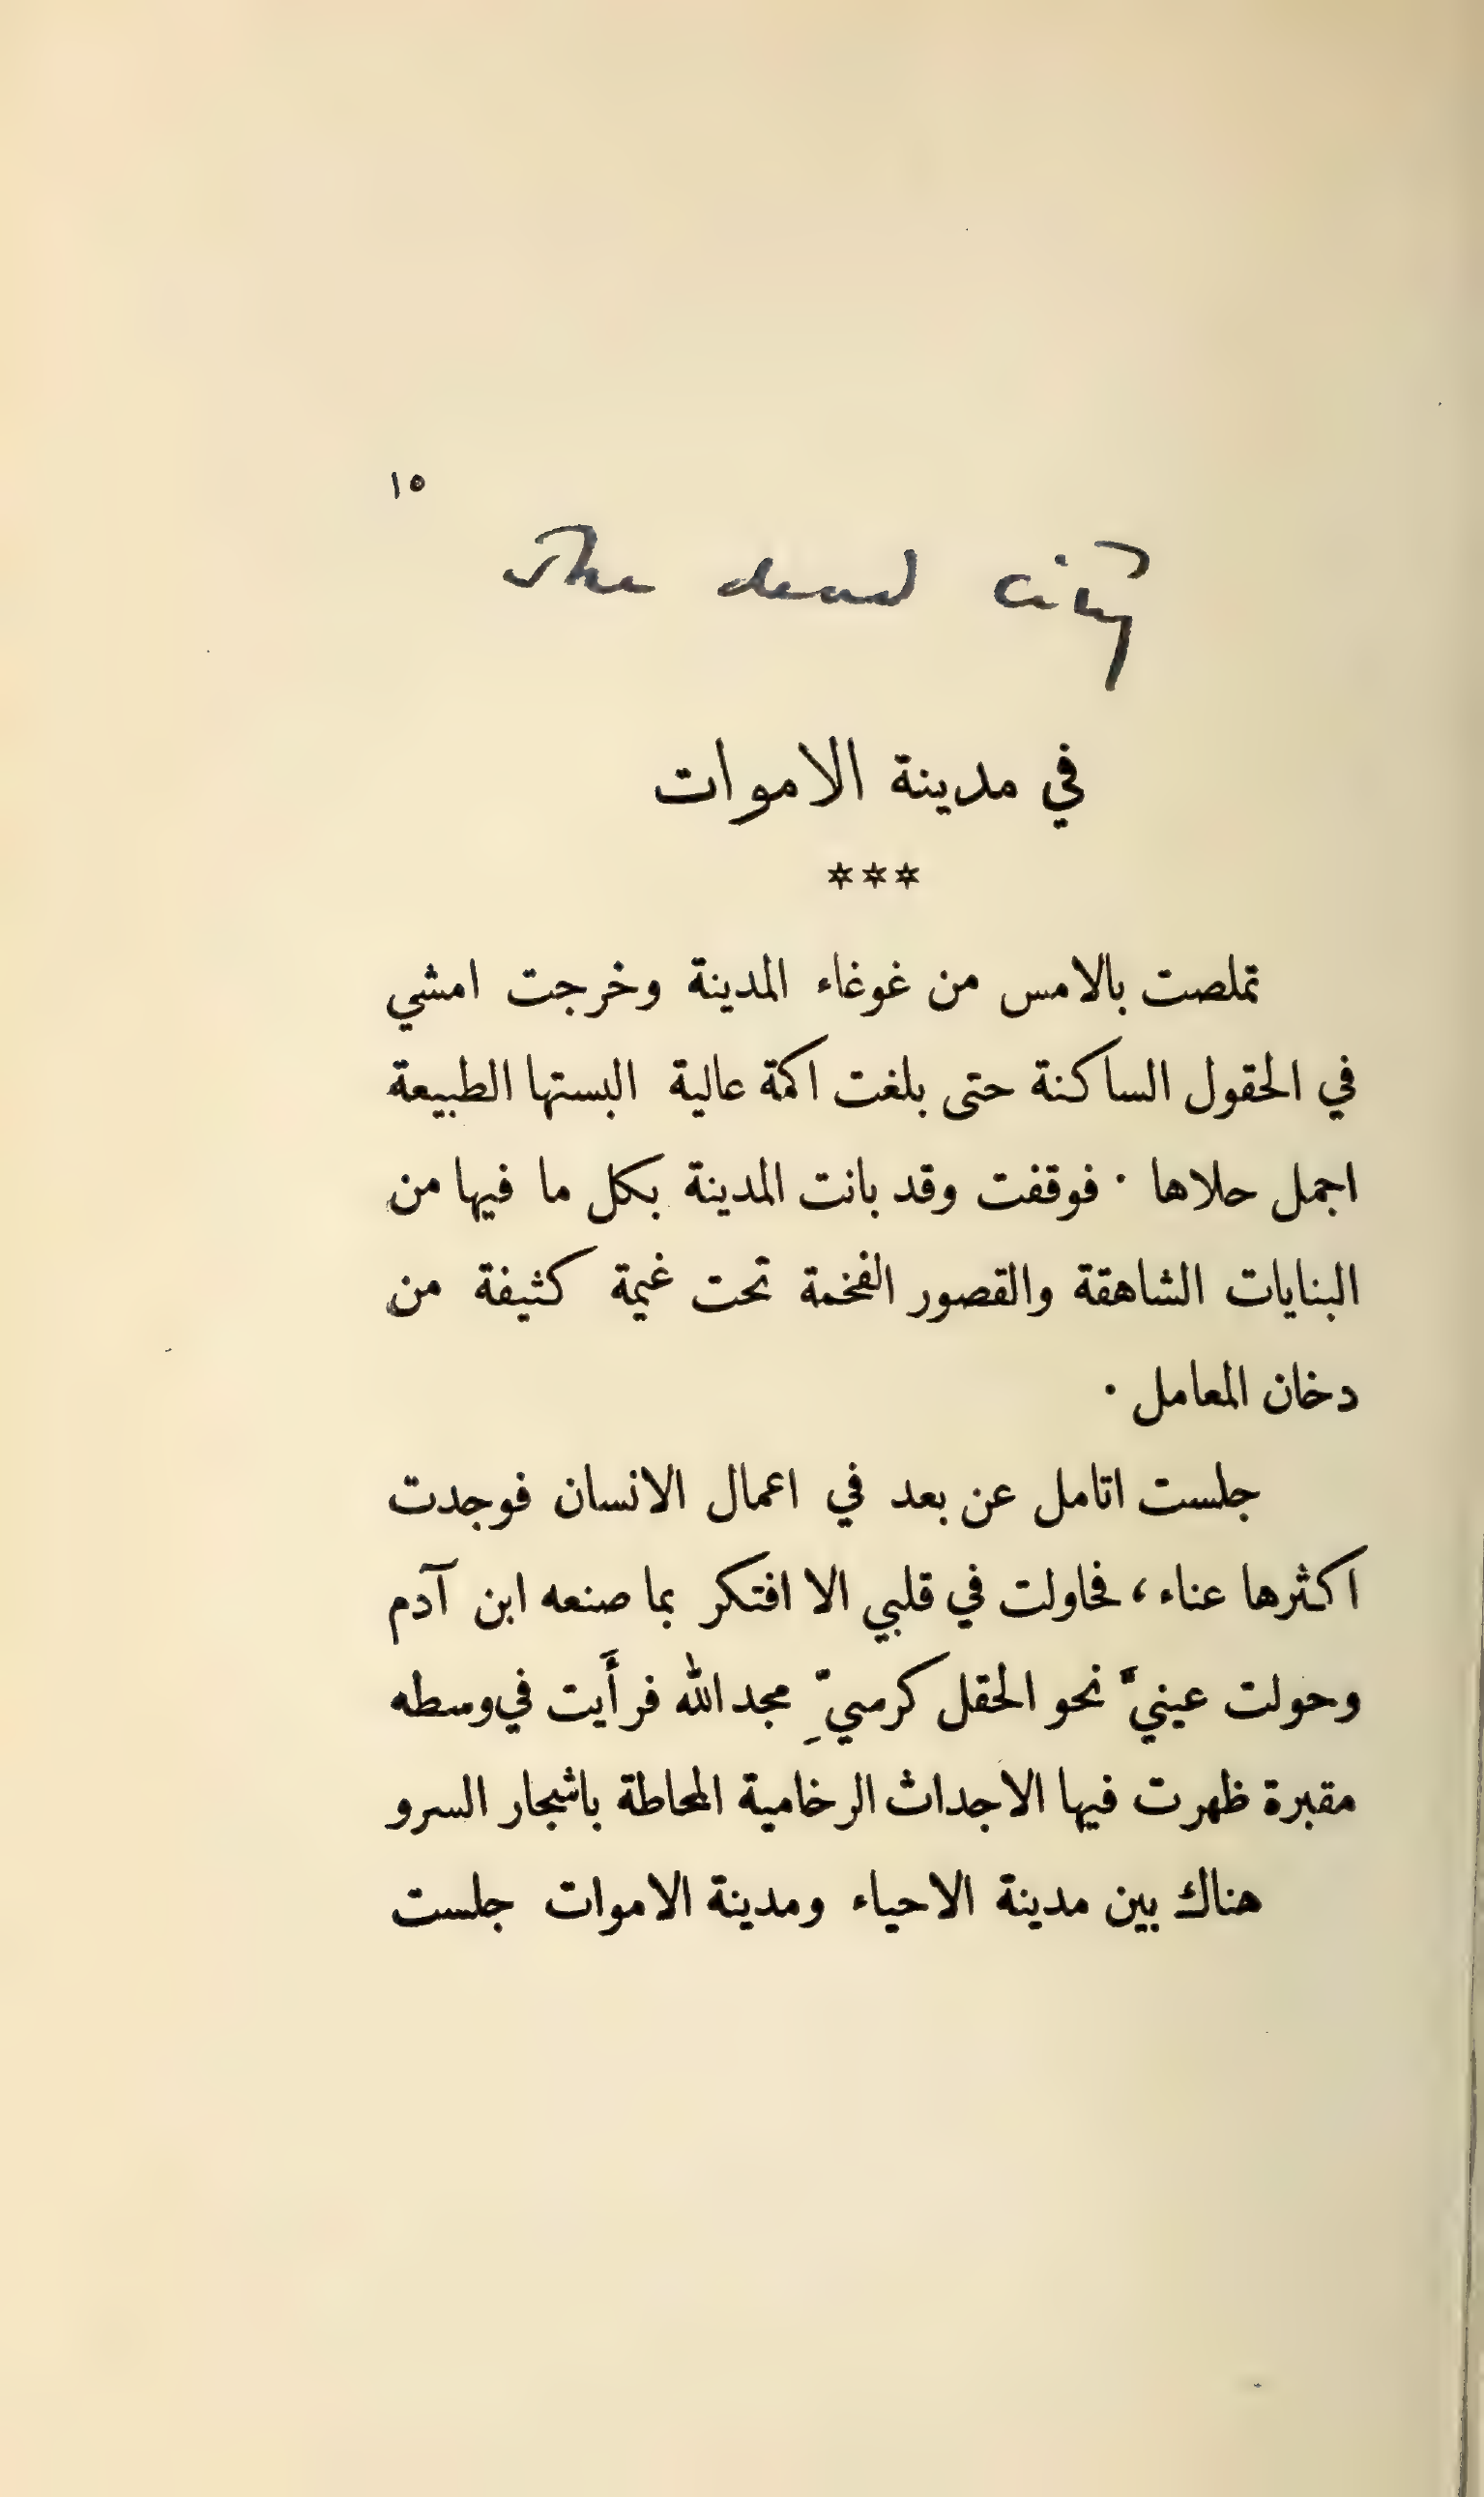 ١٥
The dead city
في مدينة الاموات
***
تملصت بالامس من غوغاء المدينة وخرجت امشي
في الحقول الساكنة حتى بلغت اكمة عالية البستها الطبيعة
اجمل حلاها ٠ فوقفت وقد بانت المدينة بكل ما فيها من
البنايات الشاهقة والقصور الفخمة تحت غيمة كثيفة من
دخان المعامل ٠
جلست اتامل عن بعد في اعمال الانسان فوجدت
اكثرها عناء، فحاولت في قلبي الا افتكر بما صنعه ابن آدم
وحولت عينيَّ نحو الحقل كرسيِّ مجد الله فرأَيت في وسطه
مقبرة ظهرت فيها الاجداث الرخامية المحاطة باشجار السرو
هناك بين مدينة الاحياء ومدينة الاموات جلست